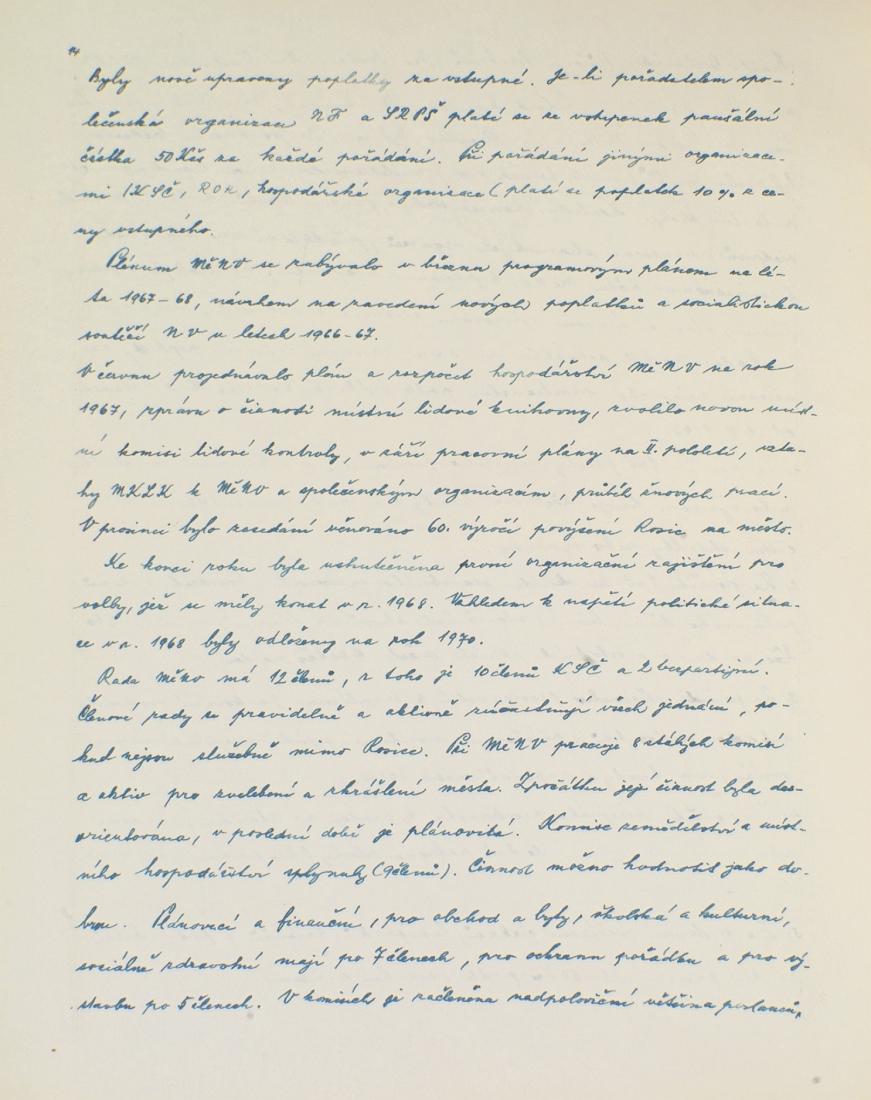 14
Byly nově upraveny poplatky za vstupné. Je-li pořadatelem spo-
lečenská organizace NF a SRPŠ platí se ze vstupenek paušální
částka 50 Kčs za každé pořádání. Při pořádání jinými organizace-
mi /KSČ, ROH, hospodářské organizace( platí se poplatek 10% z ce-
ny vstupného.
Plénum MěNV se zabývalo v březnu programovým plánem na lé-
ta 1967-68, návrhem na zavedení nových poplatků a socialistickou
soutěží NV v letech 1966-67.
V červnu projednávalo plán a rozpočet hospodářství MěNV na rok
1967, zprávu o činnosti místní lidové knihovny, zvolilo novou míst-
ní komisi lidové kontroly, v září pracovní plány na II. pololetí, vzta-
hy MKLK k MěNV a společenským organizacím, průběh žňových prací.
V prosinci bylo zasedání věnováno 60. výročí povýšení Rosic na město.
Ke konci roku byla uskutečněna první organizační zajištění pro
volby, jež se měly konat v r. 1968. Vzhledem k napětí politické situa-
ce v r. 1968 byly odloženy na rok 1970.
Rada MěNV má 12 členů, z toho je 10 členů KSČ a 2 bezpartijní.
Členové rady se pravidelně a aktivně zúčastňují všech jednání, po-
kud nejsou služebně mimo Rosice. Při MěNV pracuje 8 stálých komisí
a aktiv pro zvelebení a zkrášlení města. Zpočátku její činnost byla dez-
orientována, v poslední době je plánovitá. Komise zemědělství a míst-
ního hospodářství splynuly (9 členů). Činnost možno hodnotit jako do-
brou. Plánovací a finanční, pro obchod a byty, školská a kulturní,
sociálně zdravotní mají po 7 členech, pro ochranu pořádku a pro vý-
stavbu po 5 členech. V komisích je začleněna nadpoloviční většina poslanců,